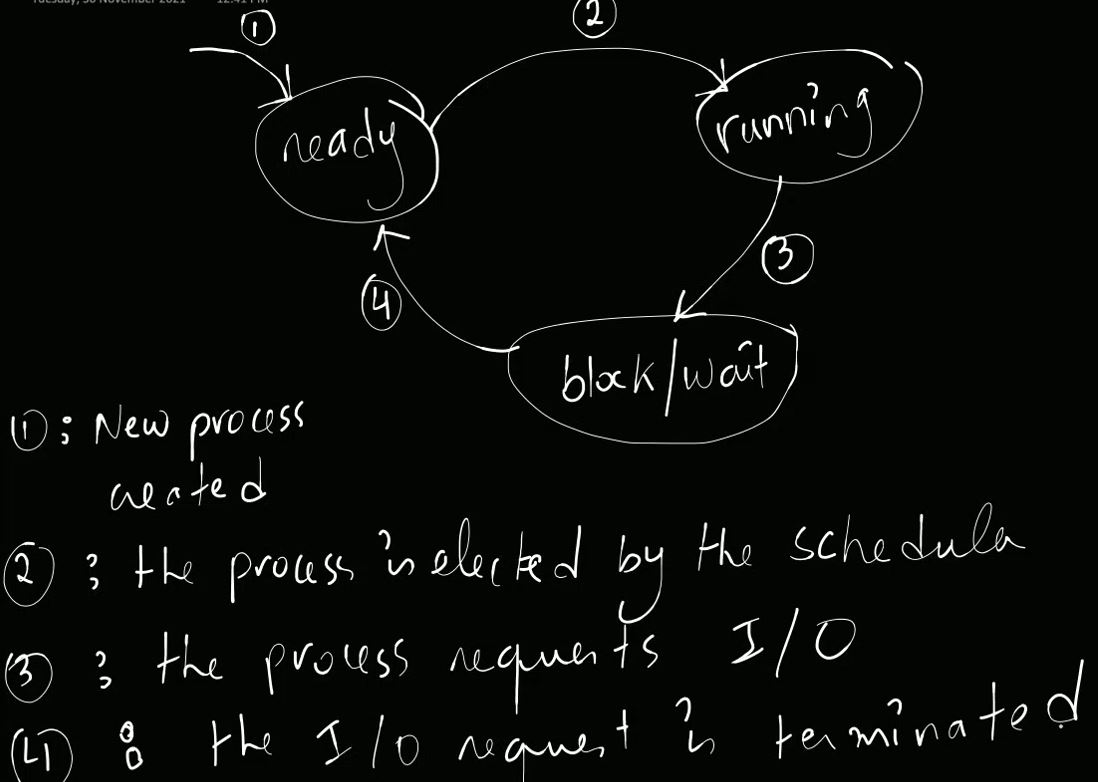 Tuesday, 30 November 2021 12:41 PM
①
②
ready
running
③
④
block/wait
①: New process
created
②: the process is elected by the schedular
③: the process requests I/O
④: the I/O request is terminated